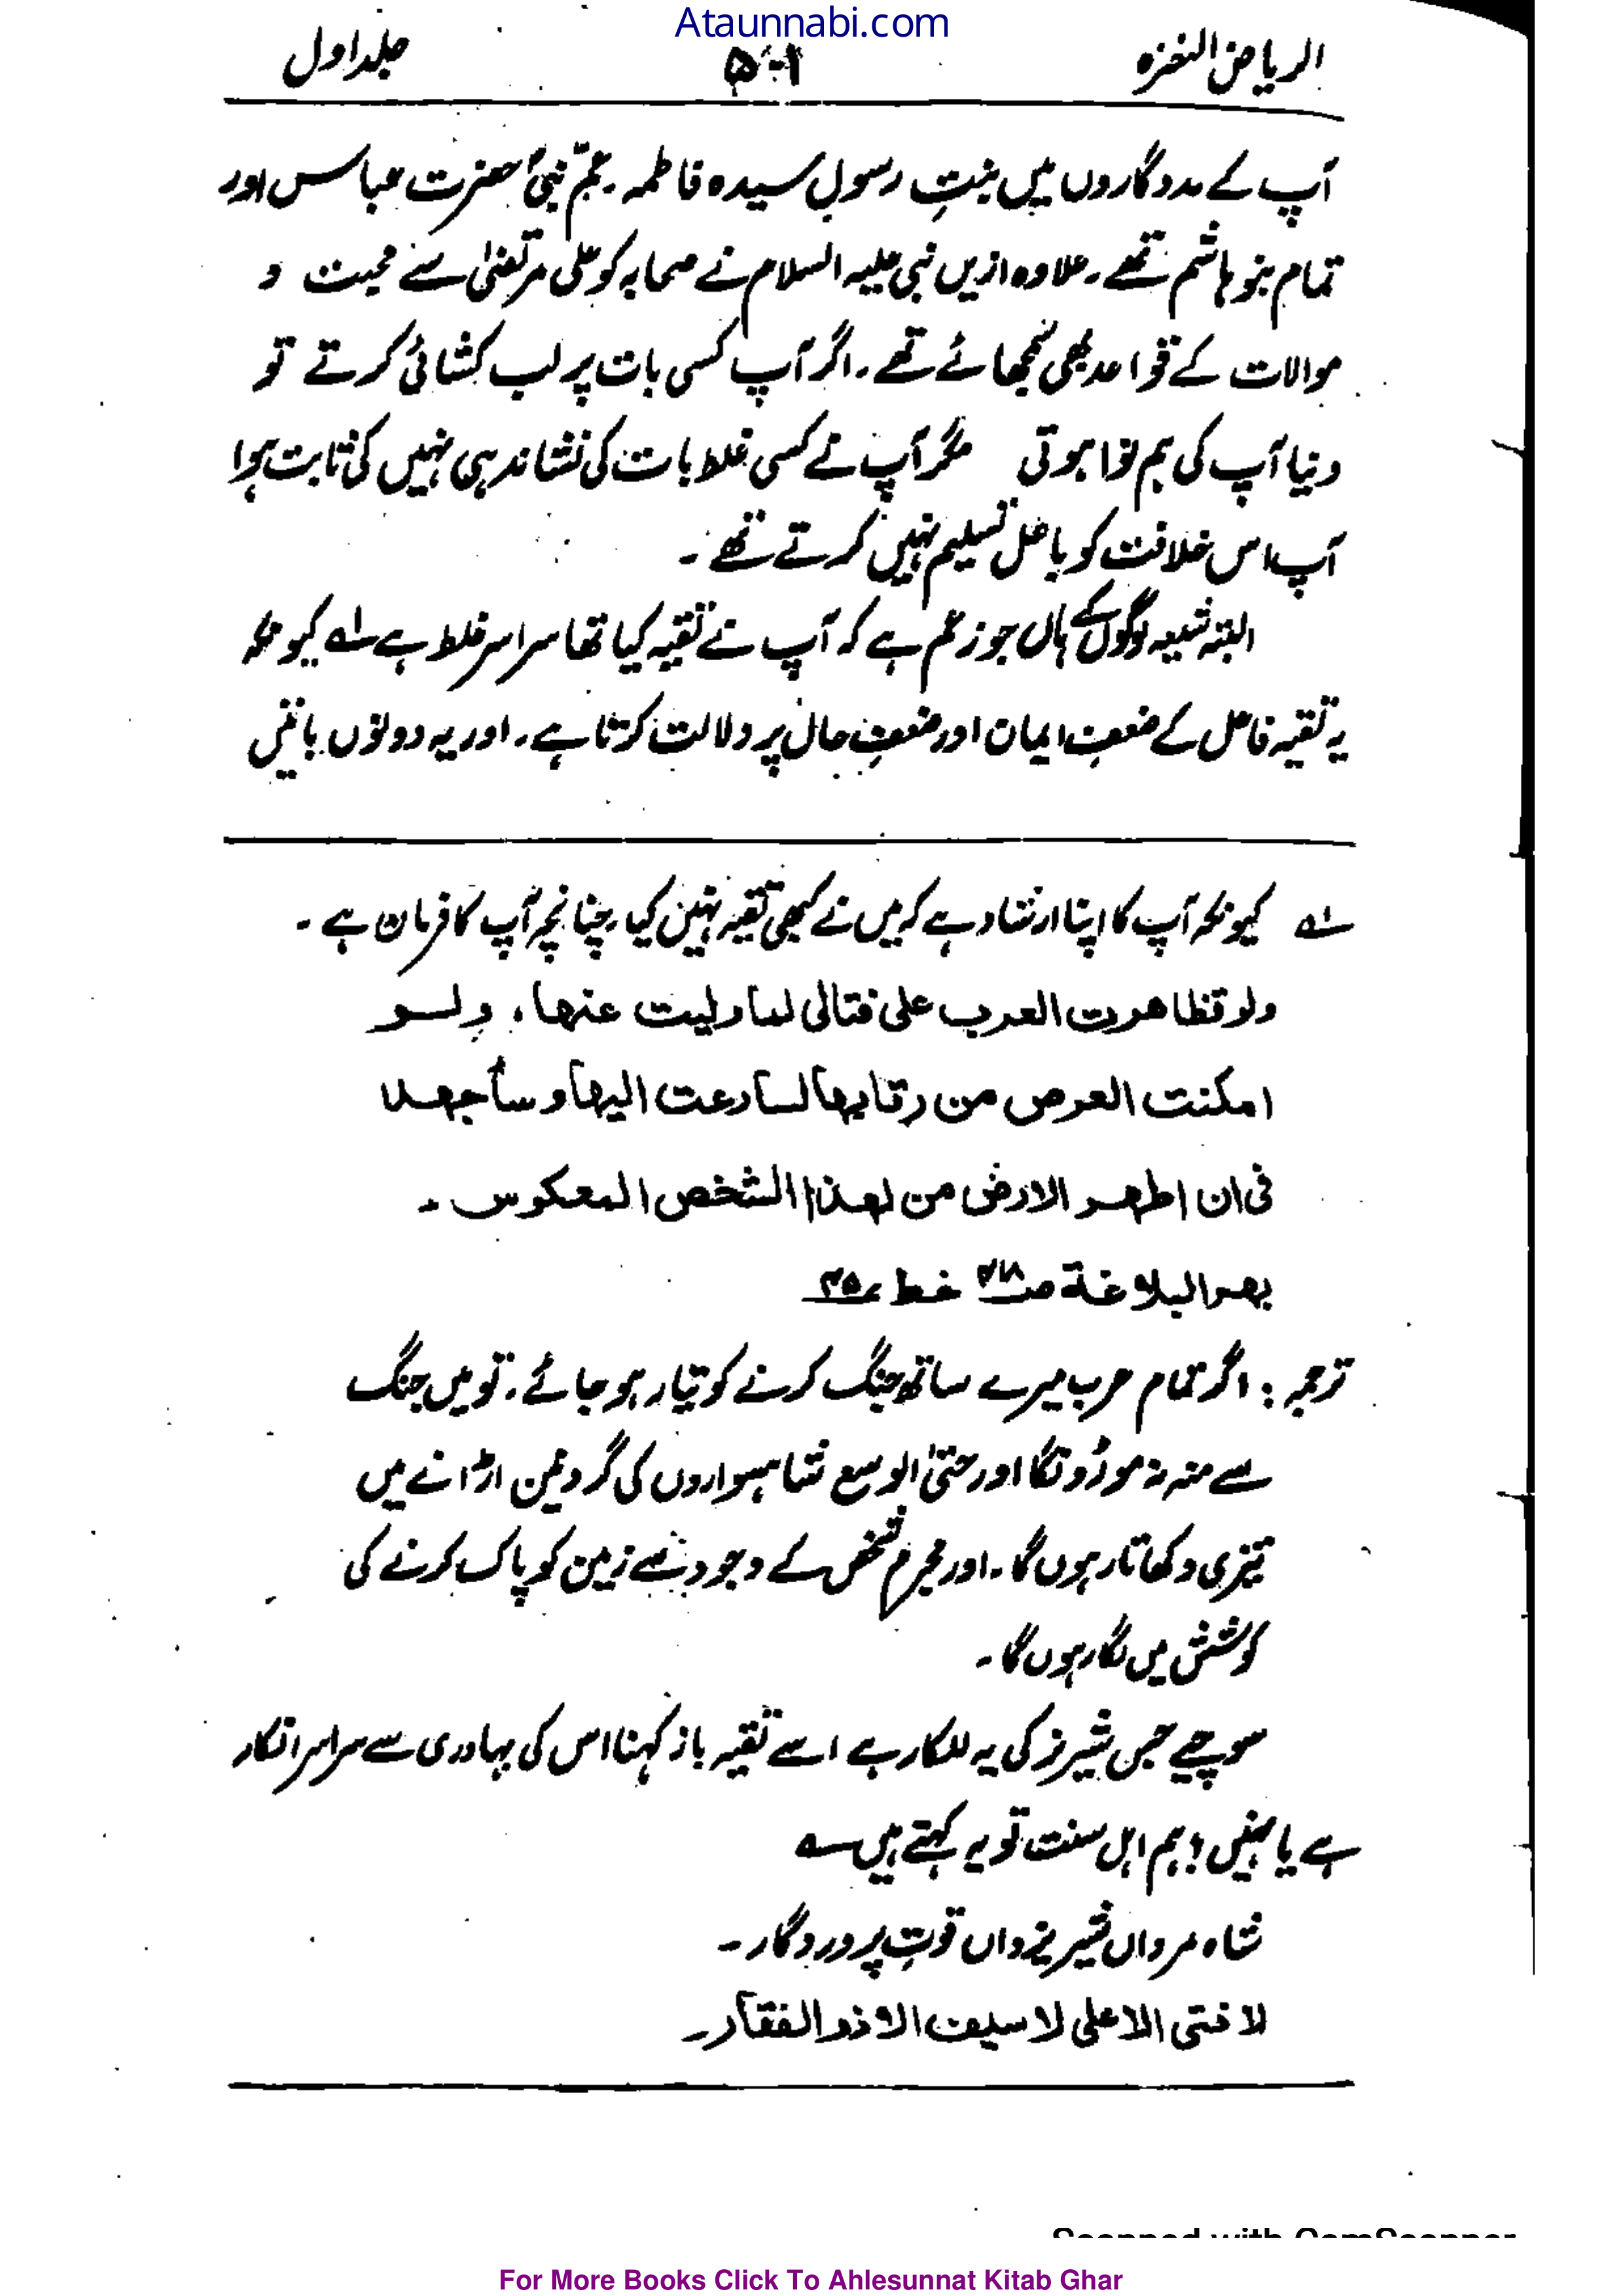 Ataunnabi.com
الریاض النضرہ ۵۰۱ جلد اول
آپ کے مددگاروں میں بنتِ رسول سیدہ فاطمہ ۔ عمِّ نبیؐ حضرت عباس اور
تمام بنو ہاشم تھے ۔ علاوہ ازیں نبی علیہ السلام نے صحابہ کو علی مرتضیٰ سے محبت و
موالات کے قواعد بھی سمجھائے تھے ۔ اگر آپ کسی بات پر لب کشائی کرتے تو
دنیا آپ کی ہم نوا ہوتی مگر آپ نے کسی غلط بات کی نشاندہی نہیں کی ثابت ہوا
آپ اس خلافت کو باطل تسلیم نہیں کرتے تھے ۔
البتہ شیعہ لوگوں کے ہاں جو زعم ہے کہ آپ نے تقیہ کیا تھا سراسر غلط ہے ؎۱ کیونکہ
یہ تقیہ فاعل کے ضعفِ ایمان اور ضعفِ حال پر دلالت کرتا ہے ۔ اور یہ دونوں باتیں
؎۱ کیونکہ آپ کا اپنا ارشاد ہے کہ میں نے کبھی تقیہ نہیں کیا ۔ چنانچہ آپ کا فرمان ہے ۔
ولو تظاهرت العرب علی قتالی لما ولیت عنها، ولو
امکنت الفرص من رقابها لسارعت الیها وسأجهد
فی ان اطهر الارض من هذا الشخص المعکوس ۔
نهج البلاغة ص خط ۴۵
ترجمہ : اگر تمام عرب میرے ساتھ جنگ کرنے کو تیار ہو جائے ۔ تو میں جنگ
سے منہ نہ موڑونگا اور حتیٰ الوسع شاہسواروں کی گردنیں اڑانے میں
تیزی دکھاتا رہوں گا ۔ اور مجرم شخص کے وجود سے زمین کو پاک کرنے کی
کوشش میں لگا رہوں گا ۔
سوچیے جس شیر نر کی یہ للکار ہے اسے تقیہ باز کہنا اس کی بہادری سے سراسر انکار
ہے یا نہیں ؟ ہم اہل سنت تو یہ کہتے ہیں ؎
شاہ مرداں شیر یزداں قوتِ پروردگار ۔
لا فتی الا علی لا سیف الا ذو الفقار ۔
Scanned with CamScanner
For More Books Click To Ahlesunnat Kitab Ghar